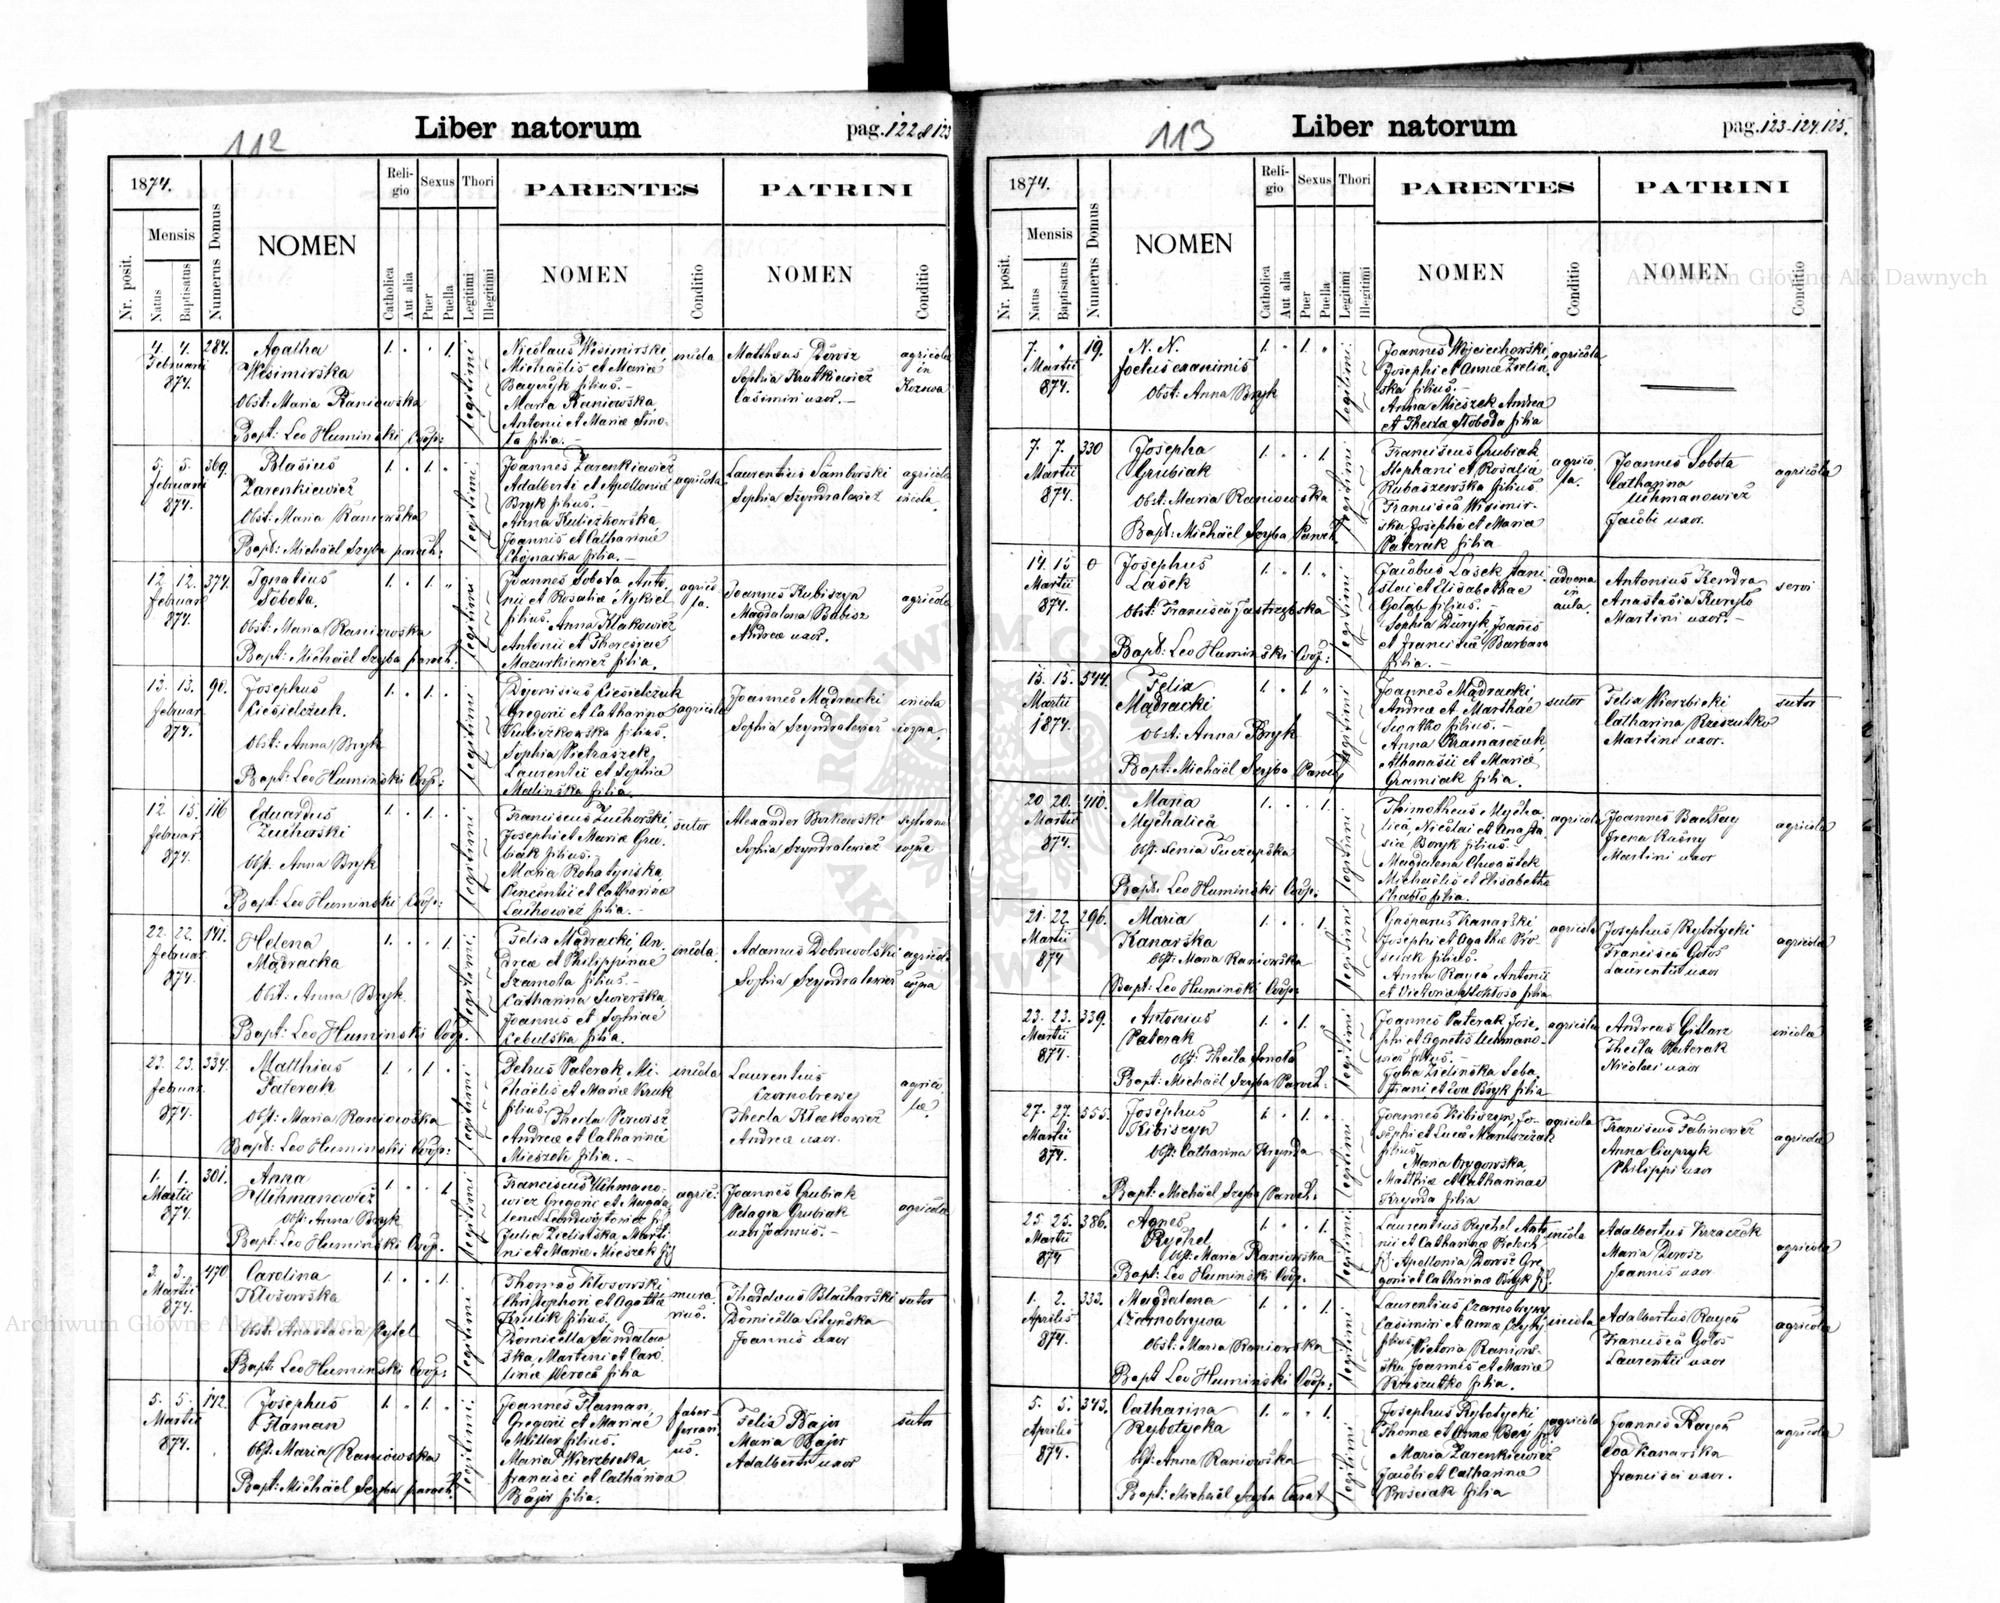 112
Liber natorum
pag. 122 & 123
1874.
Religio
Sexus
Thori
PARENTES
PATRINI
Nr. posit.
Mensis
Natus
Baptisatus
Numerus Domus
NOMEN
Catholica
Aut alia
Puer
Puella
Legitimi
Illegitimi
NOMEN
Conditio
NOMEN
Conditio
4. 4. 284. Agatha 1. . . 1. legitimi Nicolaus Wisimirski, inida Matthaeus Dorosz agricola
Februarii Wisimirska Michaelis et Mariae in
874. Bayczyk filius.– Sophia Krutkiewicz Kozowa
Obst: Maria Raniowska Maria Raniowska Casimiri uxor.–
Antonii et Mariae
Bapt: Leo Huminski Coop: filia.–
5. 5. 369. Blasius 1. . 1. . legitimi Joannes Zarenkiewicz agricola Laurentius Samborski agricola
Februarii Zarenkiewicz Adalberti et Apolloniae Sophia Szyndralewicz incola.
874. Bryk filius.–
Obst: Maria Raniowska Anna Kuliczkowska
Joannis et Catharinae
Bapt: Michaël Szyba paroch: Chojnacka filia.–
12. 12. 374. Ignatius 1. . 1. „ legitimi Joannes Sobota Anto- agrico- Joannes Kubiszyn agricola
Februar. Sobota. nii et Rosaliae Nykiel la. Magdalena Babisz
874. filius. Anna Klakowicz Andreae uxor.
Obst: Maria Raniowska Antonii et Theresiae
Bapt: Michaël Szyba paroch: Mazurkiewicz filia.
13. 13. 90. Josephus 1. . 1. . legitimi Dyonisius Ciesielczuk agricola Joannes Mądracki incola
Februar. Ciesielczuk. Gregorii et Catharina Sophia Szyndralewicz
874. Kuliczkowska filius.
Obst: Anna Bryk Sophia Pietraszek
Laurentii et Sophia
Bapt: Leo Huminski Coop: Malinska filia.
12. 15. 116 Eduardus 1. . 1. . legitimi Franciscus Zuchorski, sutor Alexander Borkowski
Februar. Zuchorski Josephi et Mariae Gru- Sophia Szyndralewicz
874. biak filius.
Obst. Anna Bryk Maria Rohatynska,
Vincentii et Catharinae
Bapt: Leo Huminski Coop: Lachowicz filia.–
22. 22. 141. Helena 1. . . 1. legitimi Felix Mądracki An- incola. Adamus Dobrowolski agricola
Februar. Mądracka dreae et Philippinae Sophia Szyndralewicz
874. Szamota filius.–
Obst: Anna Bryk Catharina Swierska
Joannis et Sophiae
Bapt: Leo Huminski Coop. Cebulska filia.
23. 23. 334. Matthias 1. . 1. . legitimi Petrus Paterak, Mi- incola Laurentius agrico-
Februar. Paterak chaelis et Mariae Kruk Czornobrewy lae.
874. filius. Thecla Klakowicz
Obst: Maria Raniowska Andreae et Catharinae Andreae uxor.
Bapt: Leo Huminski Coop: Mieszek filia.–
1. 1. 301. Anna 1. . . 1. legitimi Franciscus Uchmano- agric: Joannes Grubiak agricola
Martii Uchmanowicz wicz Gregorii et Magda- Pelagia Grubiak
874. Obst: Anna Bryk uxor Joannis.–
Bapt: Leo Huminski Coop. Julia Zielinska, Marti-
ni et Mariae Mieszek
3. 3. 470 Carolina 1. . . 1. legitimi Thomas Klosowski mura- Thaddaeus Blacharski sutor
Martii Klosowska Christophori et Agatha rius. Domicella Lityńska
874. Krulik filius. Joannis uxor
Obst: Anastasia Pytel
Bapt: Leo Huminski Coop:
5. 5. 142. Josephus 1. . 1. . legitimi Joannes Flaman, faber- Felix Bajor sutor
Martii Flaman Gregorii et Mariae ferrari- Maria Bajor
874. Müller filius. us. Adalberti uxor
Obst. Maria Raniowska Maria Wierzbicka
Francisci et Catharina
Bapt: Michaël Szyba paroch. Bajor filia.
113
Liber natorum
pag. 123-124. 125.
1874.
Religio
Sexus
Thori
PARENTES
PATRINI
Nr. posit.
Mensis
Natus
Baptisatus
Numerus Domus
NOMEN
Catholica
Aut alia
Puer
Puella
Legitimi
Illegitimi
NOMEN
Conditio
NOMEN
Conditio
7. „ 19. N. N. 1. . 1. „ legitimi Joannes Wojciechowski, agricola
Martii foetus exanimis Josephi et Annae Zielin-
874. Obst: Anna Bryk ska filius.–
Anna Mieszek Andreae
et Theclae Słoboda filia
7. 7. 330 Josepha 1. . . 1. legitimi Franciscus Grubiak agrico- Joannes Sobota agricola
Martii Grubiak Stephani et Rosalia la. Catharina
874. Kubaszewska filius. Uchmanowicz
Obst: Maria Raniowska Francisca Wisimir- Jacobi uxor.
ska, Josephi et Mariae
Bapt: Michaël Szyba Paroch Paterak filia
14. 15. 0 Josephus 1. . 1. „ legitimi Jacobus Lasek Stani- advena Antonius Kendra servi
Martii Lasek slai et Elisabethae in Anastasia Kuryło
874. Gołąb filius.– aula. Martini uxor.–
Obst: Francisca Jastrzębska Sophia Duryk Joannis
et Franciscae Barbara
Bapt: Leo Huminski Coop: filia.–
15. 15. 544. Felix 1. . 1. „ legitimi Joannes Mądracki, sutor Felix Wierzbicki sutor
Martii Mądracki Andreae et Marthae Catharina Rzeszutko
1874. filius.– Martini uxor.
Obst: Anna Bryk Anna Kramarczuk
Athanasii et Mariae
Bapt: Michaël Szyba Paroch Gramiak filia.
20. 20. 410. Maria 1. . . 1. legitimi Thimotheus Mycha- agricola Joannes agricola
Martii Mychalica lica, Nicolai et Anasta- Irena
874. siae Boryk filius. Martini uxor
Magdalena Chwastek
Michaelis et Elisabetha
Bapt. Leo Huminski Coop: filia.
21. 22. 296. Maria 1. . . 1. legitimi Gasparus Kanarski agricola Josephus Rybotycki agricola
Martii Kanarska Josephi et Agathae Pro- Francisca Gołos
874 Obst: Maria Raniowska sciak filius. Laurentii uxor
Bapt: Leo Huminski Coop: Anna Rayca Antonii
et Victoriae filia
23. 23. 339. Antonius 1. . 1. legitimi Joannes Paterak Jose- agricola Andreas Gitlarz incola
Martii Paterak phi et Agnetis Uchmano- Thecla Paterak
874. Obst. Thecla wicz filius.– Nicolai uxor
Bapt: Michaël Szyba Paroch: Julia Zielinska Seba-
stiani et Eva Bryk filia
27. 27. 555. Josephus 1. . 1. . legitimi Joannes Kibiszyn, Jo- agricola Franciscus Fabinowicz agricola
Martii Kibiszyn sephi et Lucae Anna
874. Obst: Catharina Krynda filius Philippi uxor
Maria
Bapt: Michaël Szyba Paroch: et Catharinae
Krynda filia
25. 25. 386. Agnes 1. . . 1. legitimi Laurentius Rychel Anto- incola Adalbertus Krzaczek agricola
Martii Rychel nii et Catharinae Maria Dorosz
874 Obst: Maria Raniowska Apollonia Dorosz Gre- Joannis uxor
Bapt: Leo Huminski Coop. gorii et Catharinae Bryk
1. 2. 333. Magdalena 1. . . 1. legitimi Laurentius Czarnobrywy incola Adalbertus Rayca agricola
Aprilis Czornobrywa Casimiri et Annae Francisca Gołos
874. Obst: Maria Raniowska filius. Victoria Raniow- Laurentii uxor
ska Joannis et Mariae
Bapt Leo Huminski Coop: Rzeszutko filia.
5. 5. 343. Catharina 1. „ . 1. legitimi Josephus Rybotycki agricola Joannes Rayca agricola
Aprilis Rybotycka Thomae et Annae Eva Kanarska
874. Obst: Anna Raniowska Maria Zarenkiewicz Francisci uxor.
Jacobi et Catharinae
Bapt: Michaël Szyba Prosciak filia
Archiwum Główne Akt Dawnych
Archiwum Główne Akt Dawnych
ARCHIWUM GŁÓWNE AKT DAWNYCH